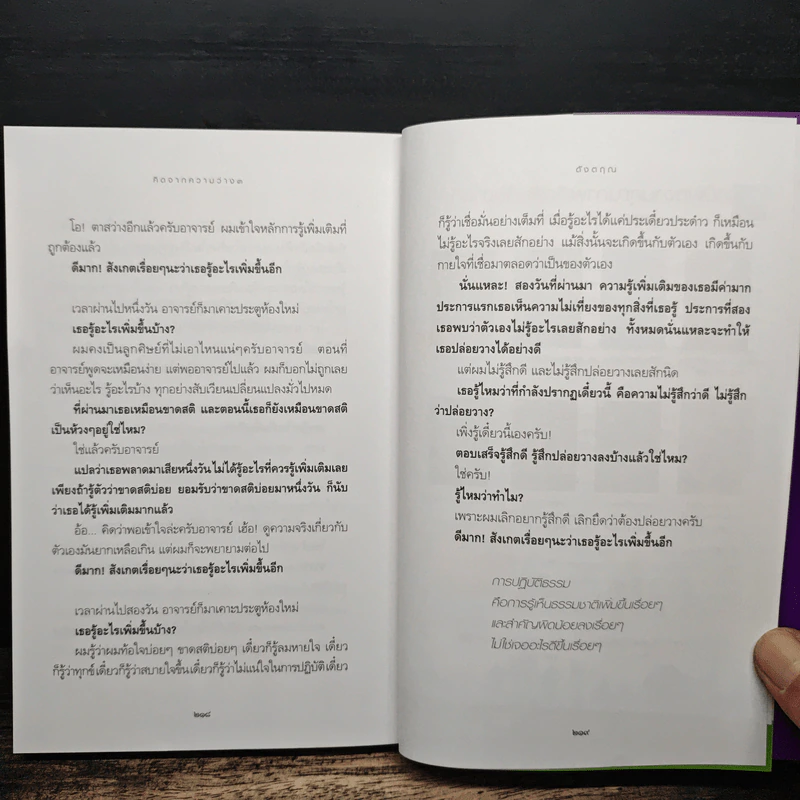 คิดจากความว่าง๓
โอ! ตาสว่างอีกแล้วครับอาจารย์ ผมเข้าใจหลักการรู้เพิ่มเติมที่
ถูกต้องแล้ว
ดีมาก! สังเกตเรื่อยๆนะว่าเธอรู้อะไรเพิ่มขึ้นอีก
เวลาผ่านไปหนึ่งวัน อาจารย์ก็มาเคาะประตูห้องใหม่
เธอรู้อะไรเพิ่มขึ้นบ้าง?
ผมคงเป็นลูกศิษย์ที่ไม่เอาไหนแน่ๆครับอาจารย์ ตอนที่
อาจารย์พูดจะเหมือนง่าย แต่พออาจารย์ไปแล้ว ผมก็บอกไม่ถูกเลย
ว่าเห็นอะไร รู้อะไรบ้าง ทุกอย่างสับเวียนเปลี่ยนแปลงมั่วไปหมด
ที่ผ่านมาเธอเหมือนขาดสติ และตอนนี้เธอก็ยังเหมือนขาดสติ
เป็นห้วงๆอยู่ใช่ไหม?
ใช่แล้วครับอาจารย์
แปลว่าเธอพลาดมาเสียหนึ่งวัน ไม่ได้รู้อะไรที่ควรรู้เพิ่มเติมเลย
เพียงถ้ารู้ตัวว่าขาดสติบ่อย ยอมรับว่าขาดสติบ่อยมาหนึ่งวัน ก็นับ
ว่าเธอได้รู้เพิ่มเติมมากแล้ว
อ้อ... คิดว่าพอเข้าใจล่ะครับอาจารย์ เฮ้อ! ดูความจริงเกี่ยวกับ
ตัวเองมันยากเหลือเกิน แต่ผมก็จะพยายามต่อไป
ดีมาก! สังเกตเรื่อยๆนะว่าเธอรู้อะไรเพิ่มขึ้นอีก
เวลาผ่านไปสองวัน อาจารย์ก็มาเคาะประตูห้องใหม่
เธอรู้อะไรเพิ่มขึ้นบ้าง?
ผมรู้ว่าผมท้อใจบ่อยๆ ขาดสติบ่อยๆ เดี๋ยวก็รู้ลมหายใจ เดี๋ยว
ก็รู้ว่าทุกข์ เดี๋ยวก็รู้ว่าสบายใจขึ้น เดี๋ยวก็รู้ว่าไม่แน่ใจในการปฏิบัติ เดี๋ยว
๒๑๘
ดังตฤณ
ก็รู้ว่าเชื่อมั่นอย่างเต็มที่ เมื่อรู้อะไรได้แค่ประเดี๋ยวประด๋าว ก็เหมือน
ไม่รู้อะไรจริงเลยสักอย่าง แม้สิ่งนั้นจะเกิดขึ้นกับตัวเอง เกิดขึ้นกับ
กายใจที่เชื่อมาตลอดว่าเป็นของตัวเอง
นั่นแหละ! สองวันที่ผ่านมา ความรู้เพิ่มเติมของเธอมีค่ามาก
ประการแรกเธอเห็นความไม่เที่ยงของทุกสิ่งที่เธอรู้ ประการที่สอง
เธอพบว่าตัวเองไม่รู้อะไรเลยสักอย่าง ทั้งหมดนั่นแหละจะทำให้
เธอปล่อยวางได้อย่างดี
แต่ผมไม่รู้สึกดี และไม่รู้สึกปล่อยวางเลยสักนิด
เธอรู้ไหมว่าที่กำลังปรากฏเดี๋ยวนี้ คือความไม่รู้สึกว่าดี ไม่รู้สึก
ว่าปล่อยวาง?
เพิ่งรู้เดี๋ยวนี้เองครับ!
ตอบเสร็จรู้สึกดี รู้สึกปล่อยวางลงบ้างแล้วใช่ไหม?
ใช่ครับ!
รู้ไหมว่าทำไม?
เพราะผมเลิกอยากรู้สึกดี เลิกยึดว่าต้องปล่อยวางครับ
ดีมาก! สังเกตเรื่อยๆนะว่าเธอรู้อะไรเพิ่มขึ้นอีก
การปฏิบัติธรรม
คือการรู้เห็นธรรมชาติเพิ่มขึ้นเรื่อยๆ
และสำคัญผิดน้อยลงเรื่อยๆ
ไม่ใช่เจออะไรดีขึ้นเรื่อยๆ
๒๑๙